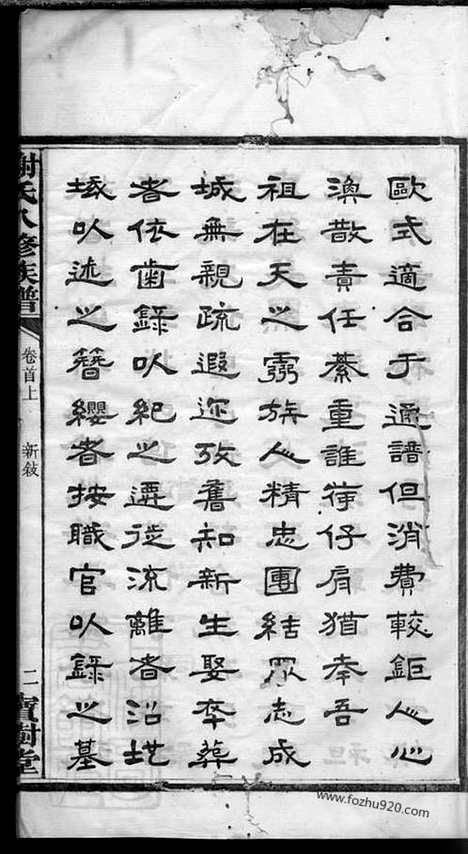 歐式適合于通譜但消費較鉅人心
渙散責任綦重誰荷仔肩猶幸吾
祖在天之靈族人精忠團結眾志成
城無親疏遐邇攷舊知新生娶卒葬
者依齒錄以紀之遷徙流離者沿
𡎺以述之簪纓者按職官以錄之墓
謝氏八修族譜
卷首上
新敘
二
寶樹堂
www.fozhu920.com